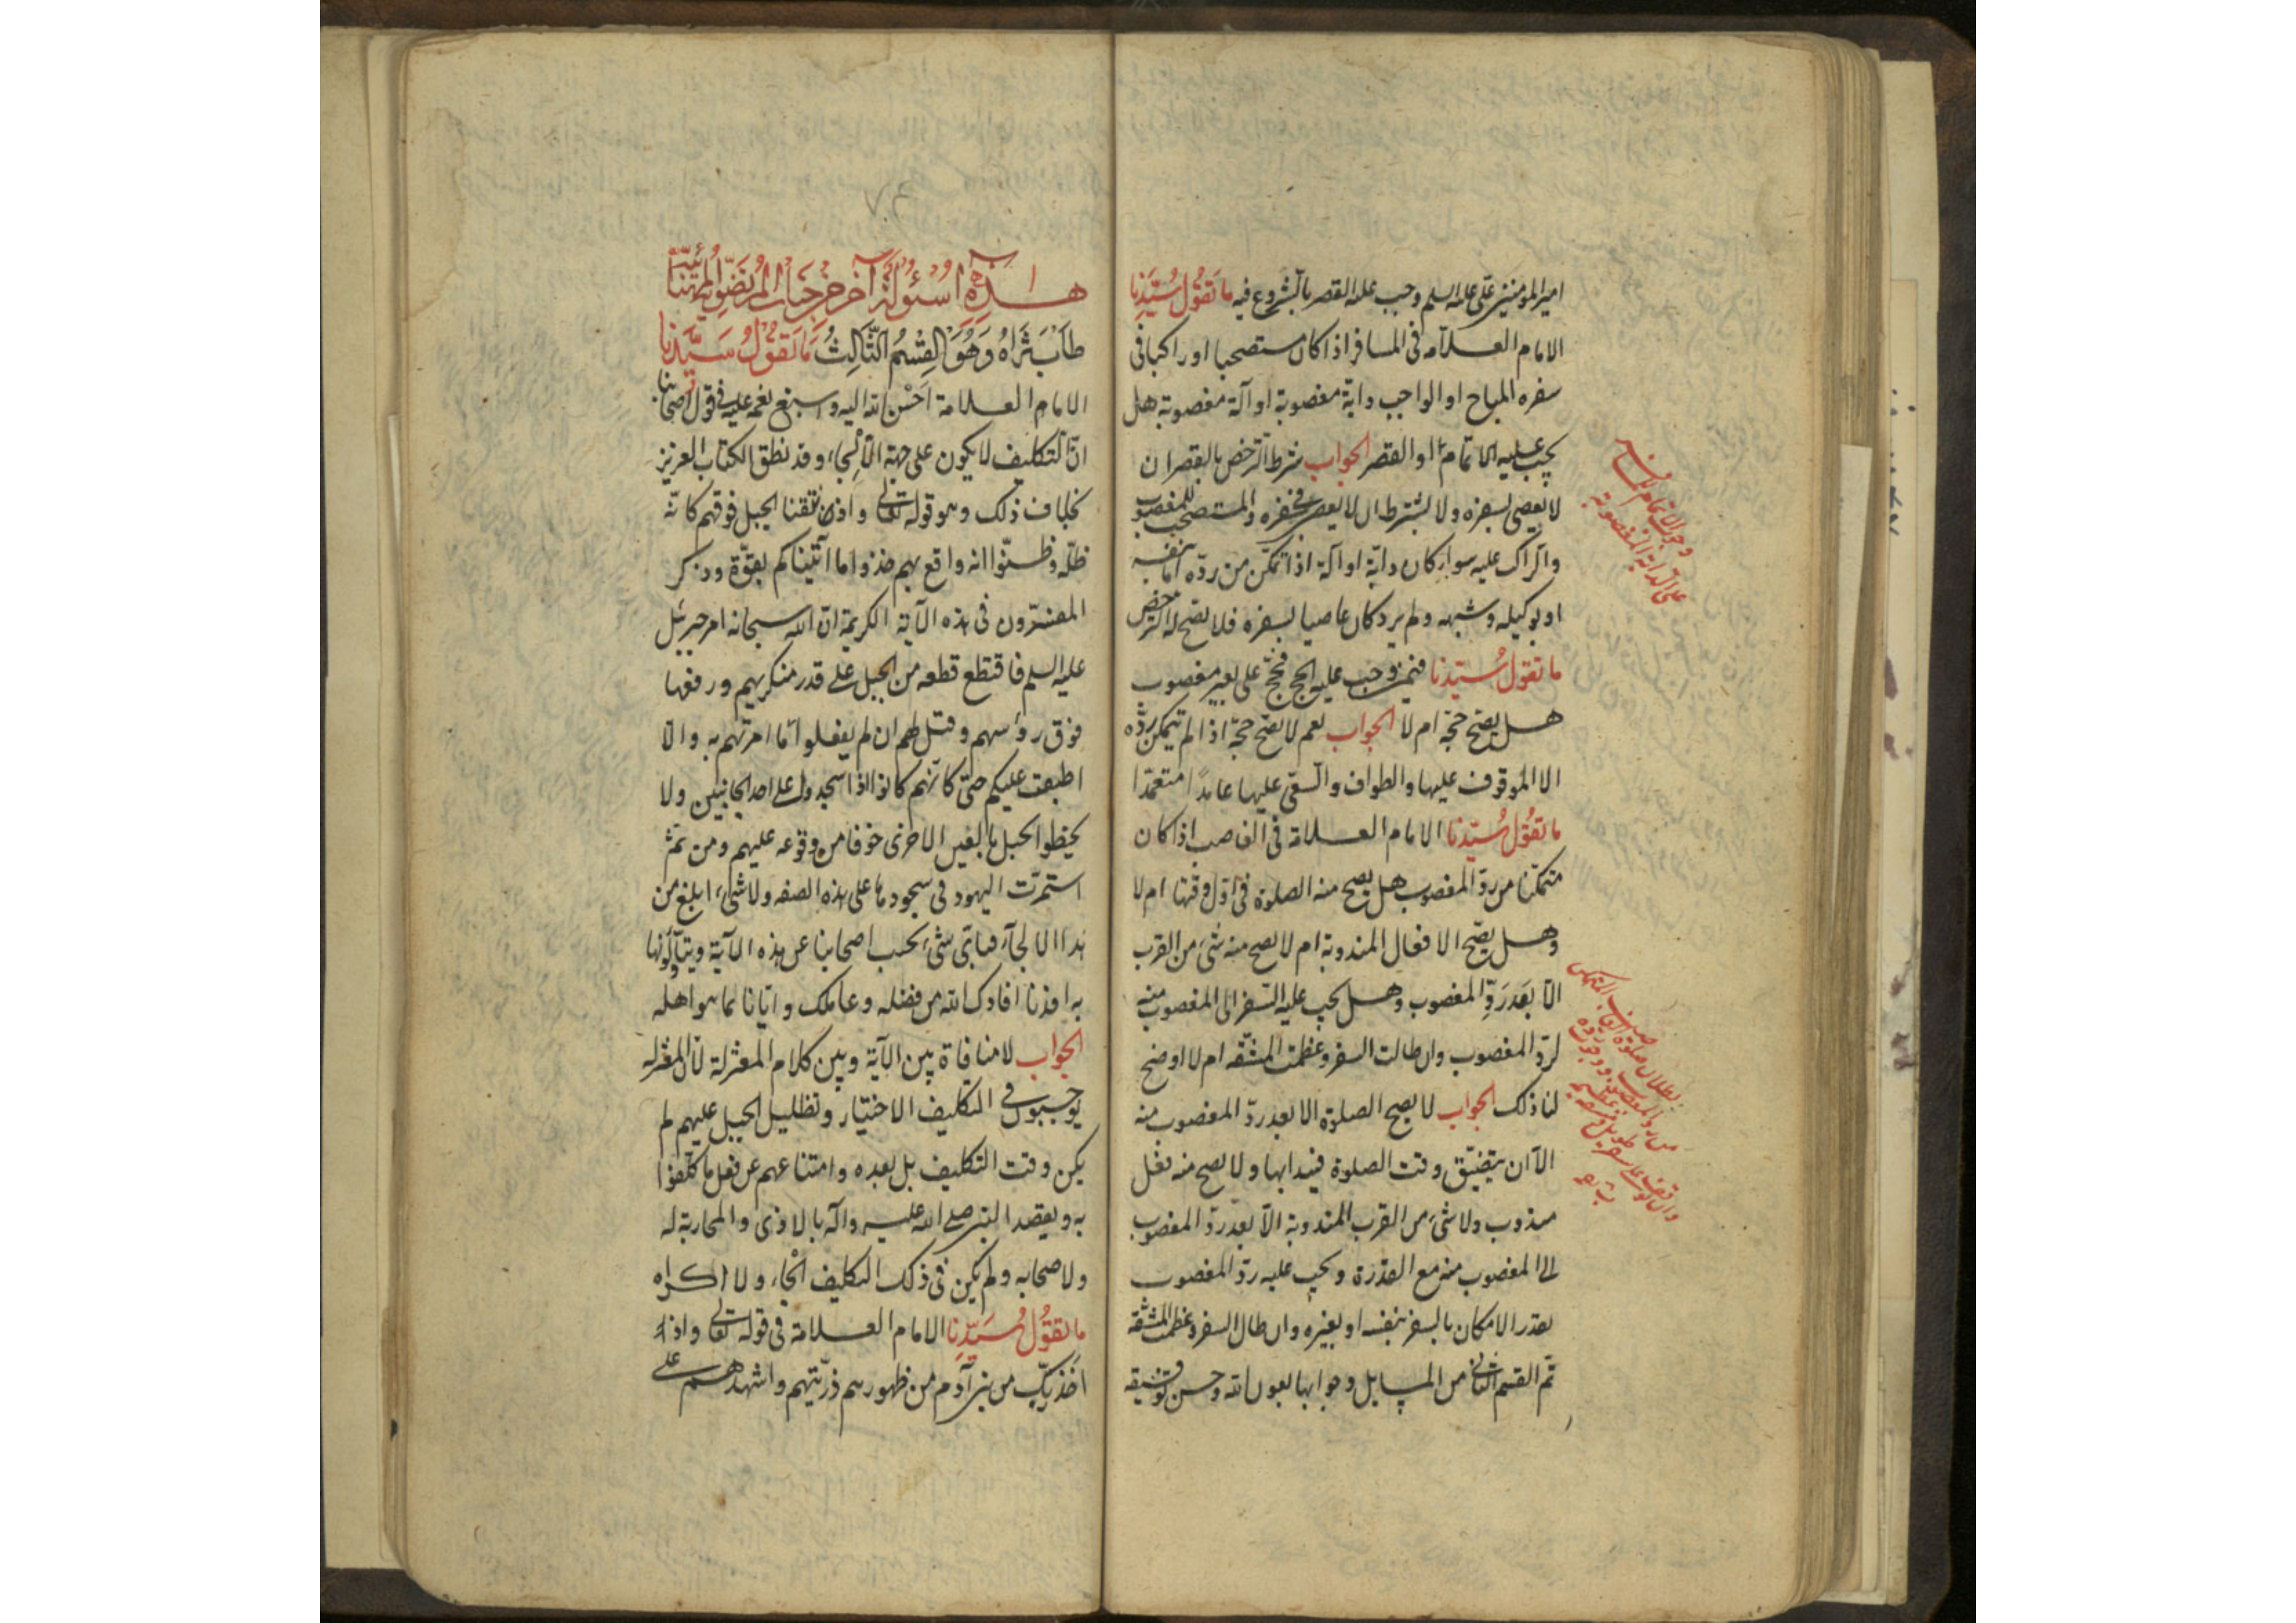 امير المومنين على عليه السلم وجب عليه القصر بالشروع فيه ما تقول سيدنا
الامام العلامه فى المسافر اذا كان مستصحبا او راكبا فى
سفره المباح او الواجب دابة مغصوبة او آلة مغصوبة هل
يجب عليه الاتمام او القصر الجواب شرط الترخص بالقصر ان
لا يعصى بسفره ولا يشترط ان لا يعصى فى سفره والمستصحب للمغصوب
والراكب عليه سواء كان دابة او آلة اذا تمكن من رده اما بنفسه
او بوكيله وشبهه ولم يرد كان عاصيا بسفره فلا يصح له الترخص
ما تقول سيدنا فيمن وجب عليه الحج فحج على بعير مغصوب
هل يصح حجه ام لا الجواب نعم لا يصح حجه اذا لم يتمكن برده
الا الوقوف عليها والطواف والسعى عليها عامدا متعمدا
ما تقول سيدنا الامام العلامة فى الغاصب اذا كان
متمكنا من رد المغصوب هل يصح منه الصلوة فى اول وقتها ام لا
وهل يصح الافعال المندوبة ام لا يصح منه شىء من القرب
الا بعد رد المغصوب وهل يجب عليه السفر الى المغصوب منه
لرد المغصوب وان طالت السفر وعظمت المشقه ام لا اوضح
لنا ذلك الجواب لا يصح الصلوة الا بعد رد المغصوب منه
الا ان يتضيق وقت الصلوة فيبدا بها ولا يصح منه فعل
مندوب ولا شىء من القرب المندوبة الا بعد رد المغصوب
الى المغصوب منه مع القدرة ويجب عليه رد المغصوب
بقدر الامكان بالسفر بنفسه او بغيره وان طال السفر وعظمت المشقه
تم القسم الثانى من المسايل وجوابها بعون الله وحسن توفيقه
وجوب الاتمام
على الدابة المغصوبة
بطلان صلوة الغاصب المتمكن
من رد المغصوب
٧٠٤
هذه اسئولة آخر من جناب المرتضوية المهنائية
طاب ثراه وهو القسم الثالث ما تقول سيدنا
الامام العلامة احسن الله اليه واسبغ نعمه عليه فى قول اصحابنا
ان التكليف لا يكون على جهة الالجاء وقد نطق الكتاب العزيز
بخلاف ذلك وهو قوله تعالى واذ نتقنا الجبل فوقهم كانه
ظلة وظنوا انه واقع بهم خذوا ما آتيناكم بقوة وذكر
المفسرون فى هذه الآية الكريمة ان الله سبحانه امر جبرئيل
عليه السلم فاقتطع قطعه من الجبل على قدر معسكرهم ورفعها
فوق رؤسهم وقيل لهم ان لم يفعلوا ما امرتهم به والا
اطبقت عليكم حتى كانهم كانوا اذا سجدوا على احد الجانبين ولا
يحظوا الجبل بالعين الاخرى خوفا من وقوعه عليهم ومن ثم
استمرت اليهود فى سجودها على هذه الصفه ولا شىء ابلغ من
هذا الالجاء فباى شىء يجيب اصحابنا عن هذه الآية ويتأولونها
به افدنا افادك الله من فضله وعاملك وايانا بما هو اهله
الجواب لا منافاة بين الآية وبين كلام المعتزلة لان المعتزله
يوجبون فى التكليف الاختيار وتظليل الجبل عليهم لم
يكن وقت التكليف بل بعده وامتناعهم عن فعل ما كلفوا
به وبقصد النبى صلى الله عليه وآله بالاذى والمحاربة له
ولاصحابه ولم يكن فى ذلك التكليف الجاء ولا اكراه
ما تقول سيدنا الامام العلامة فى قوله تعالى واذ
اخذ ربك من بنى آدم من ظهورهم ذريتهم واشهدهم على